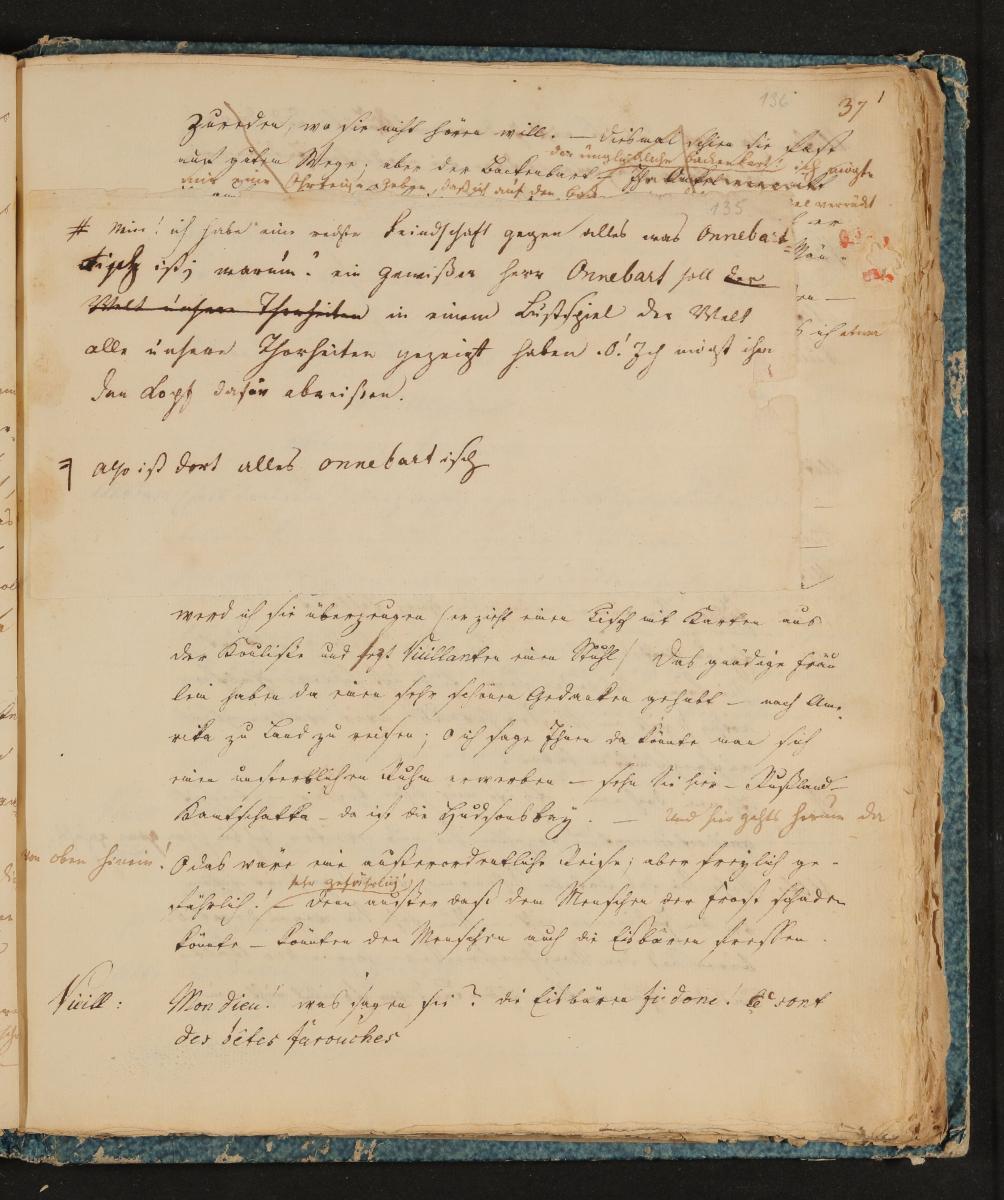 136
37
zureden, wo sie nicht hören will. — diesmal schien sie fast
der unglückliche Backenbart! ich möchte
auf gutem Wege; aber der Backenbart — Ihr Onkel verrückt
mir eine Ohrfeige geben, daß ich auf den
135
el verrückt
# Nein! ich habe eine rechte Feindschaft gegen alles was Onnebar
tisch ist; warum? ein gewißer Herr Onnebart soll der
Welt unsere Thorheiten in einem Lustspiel der Welt
alle unsere Thorheiten gezeigt haben. O! Ich möcht ihm
den Kopf dafür abreißen.
also ist dort alles onnebartisch
werd ich sie überzeugen (er zieht einen Tisch mit Karten aus
der Koulisse und sezt Vieillanten einen Stuhl) Das gnädige Fräu
lein haben da einen sehr schönen Gedanken gehabt — nach Ame-
rika zu Land zu reisen; O ich sage Ihnen da könnte man sich
einen unsterblichen Ruhm erwerben — sehn Sie hier — Rußland —
Kamtschatka — da ist die Hudsonsbay. — und hier gehts herum da
von oben hinein!
O das wäre eine außerordentliche Reise; aber freylich ge-
sehr gefährlich!
fährlich! denn außer daß dem Menschen der Frost schaden
könnte — könnten den Menschen auch die Eisbären fressen.
Vieill: Mon dieu! was sagen sie? die Eisbären fi donc! Ce sont
des bêtes farouches